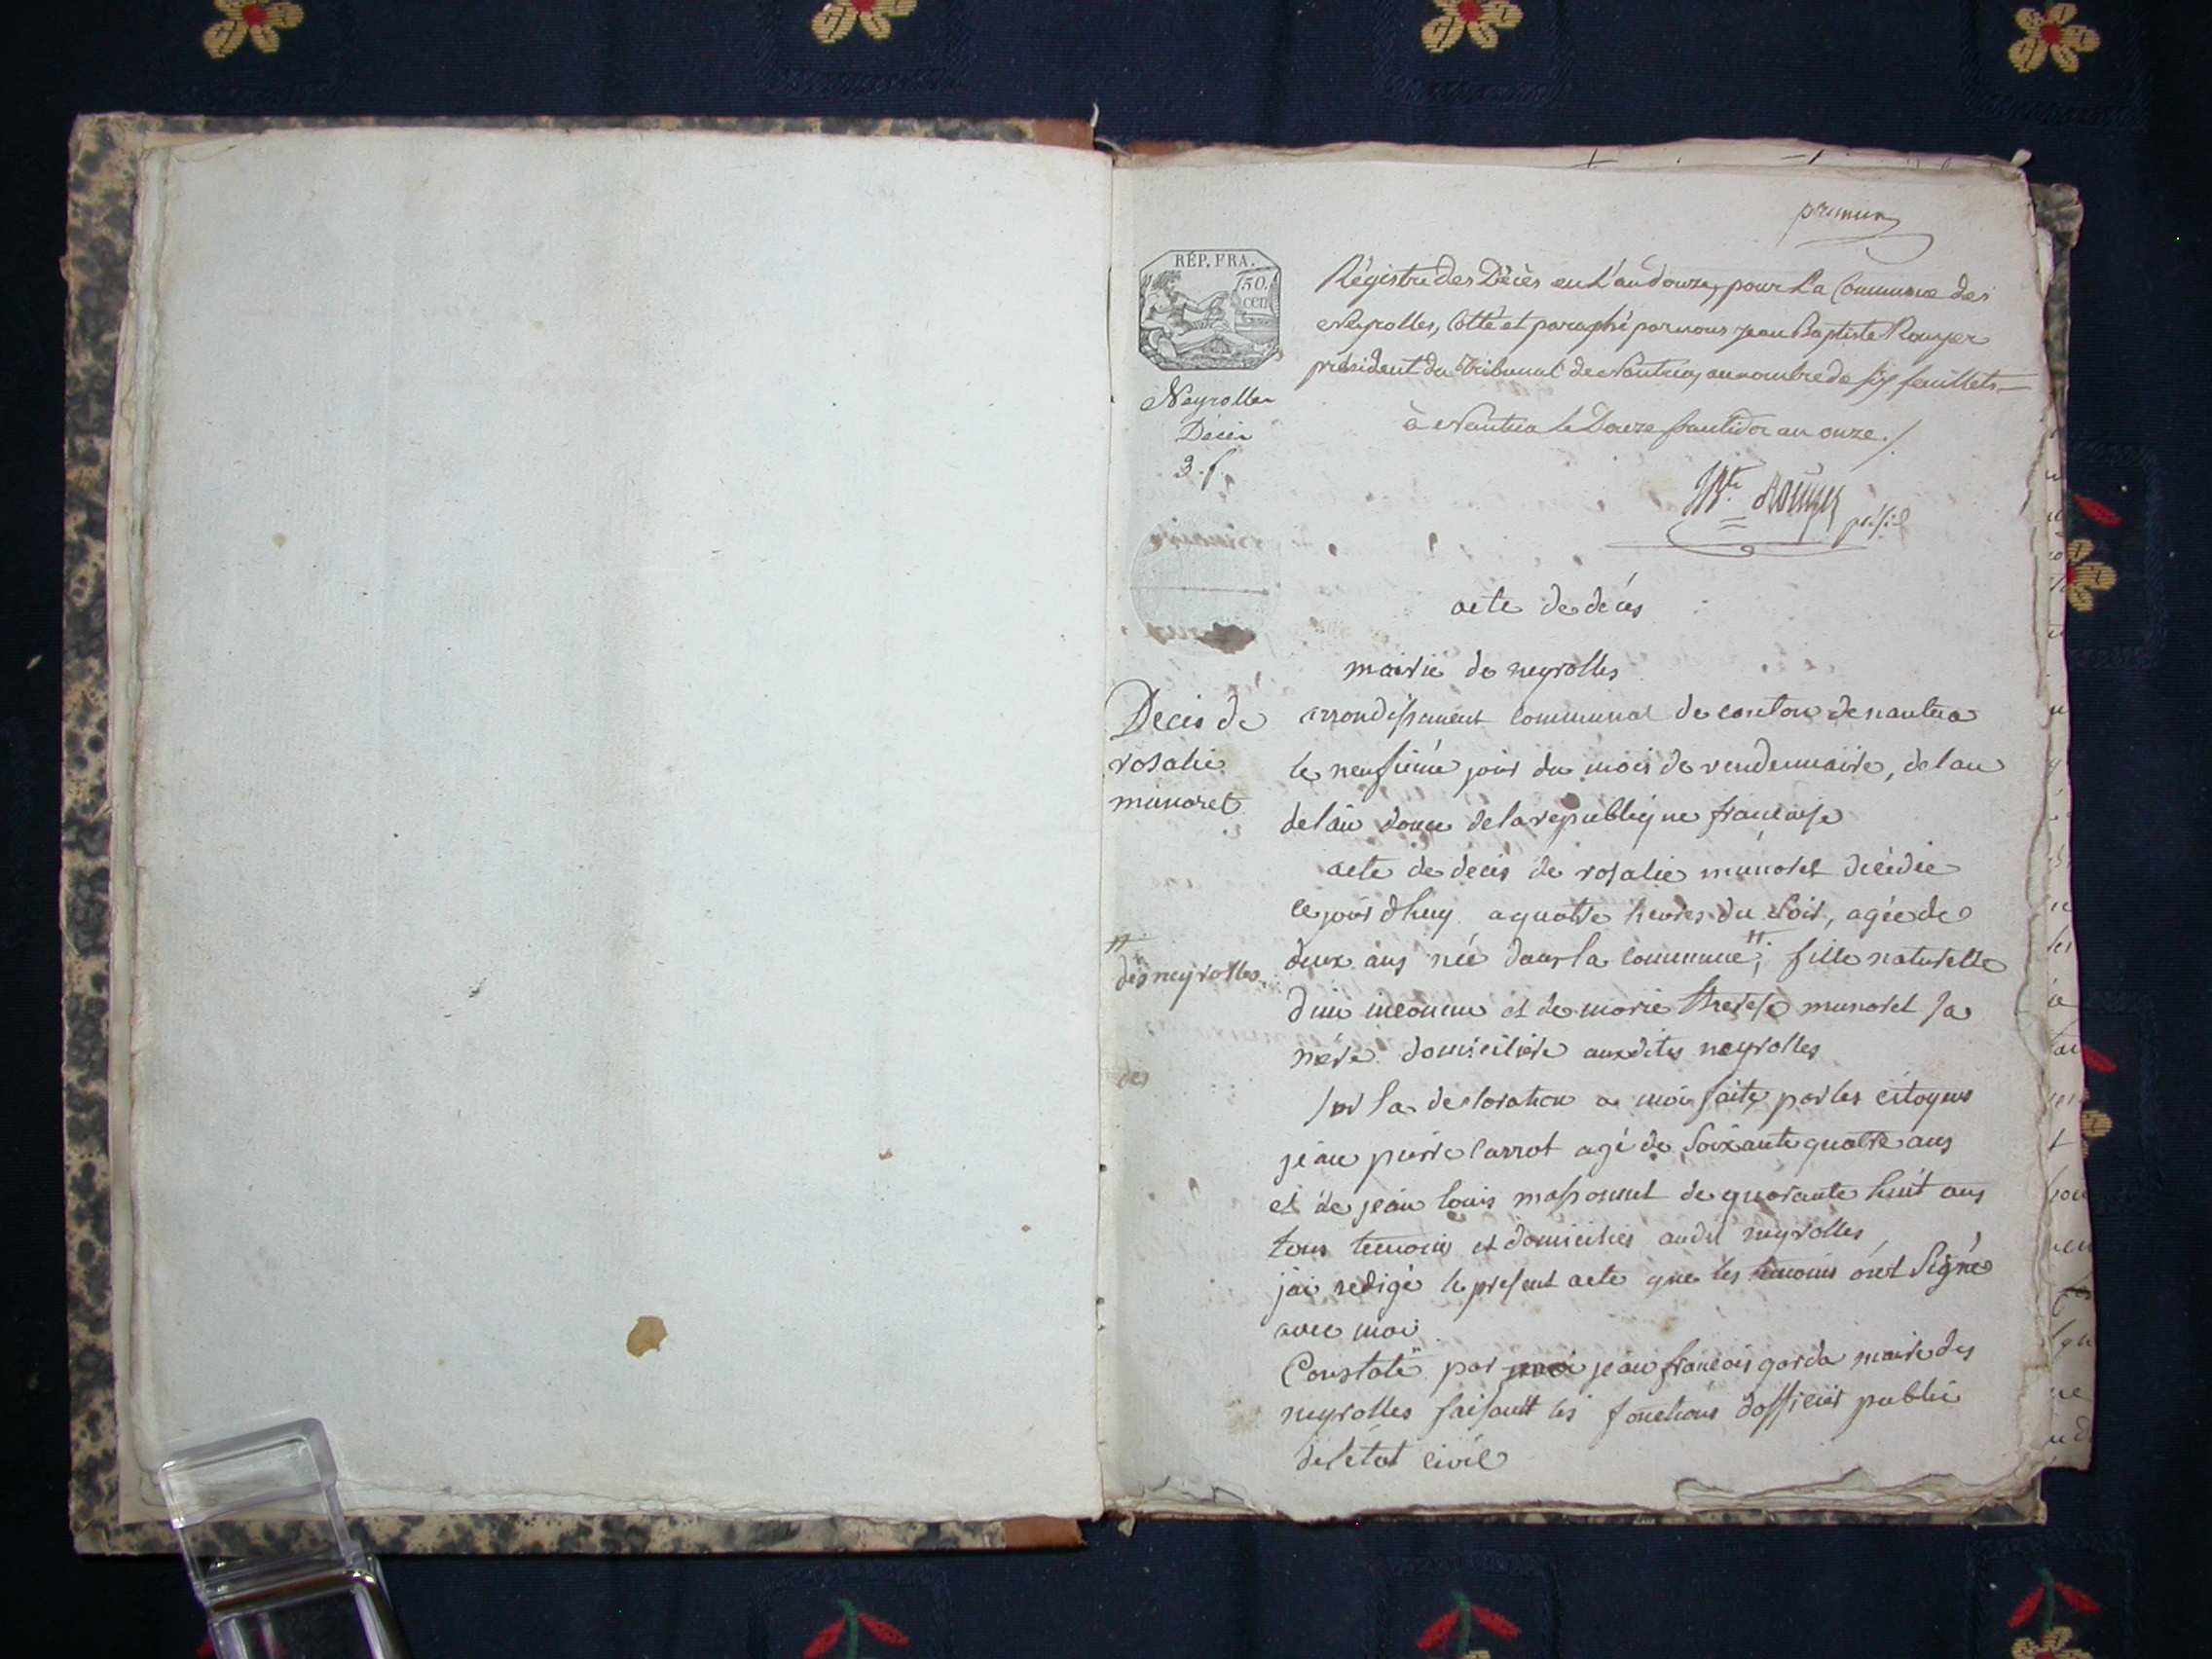 premier
RÉP. FRA.
50.
cen
Régistre des Décès en L'an douze, pour La Commune des
Neyrolles, Cotté et paraphé par nous Jean Baptiste Rouyer
président du Tribunal de Nantua, au nombre de six feuillets
à Nantua le Douze fructidor an onze./.
Neyrolles
Décès
3. f.
Bte Rouyer présid
acte de décès
mairie de neyrolles
Deces de
rosalie
munoret
arrondissement communal de canton de nantua
le neufieme jour du mois de vendemiaire, de lan
de lan douze de la republique françaisse
acte de deces de rosalie munoret décédée
ce jour dhuy a quatre heures du soir, agée de
deux ans née dans la commune, fille naturelle
des neyrolles
d'un inconnu et de marie therese munoret sa
mere domiciliée auxdites neyrolles
des
sur la declaration a moi faite par les citoyens
jean pierre carrot agé de soixante quatre ans
et de jean louis massonnet de quarante huit ans
tous temoins et domiciliés audit neyrolles
jai redigé le present acte que les temoins ont signé
avec moi
Constaté par moi jean françois garda maire des
neyrolles faisant les fonctions dofficier public
de létat civil